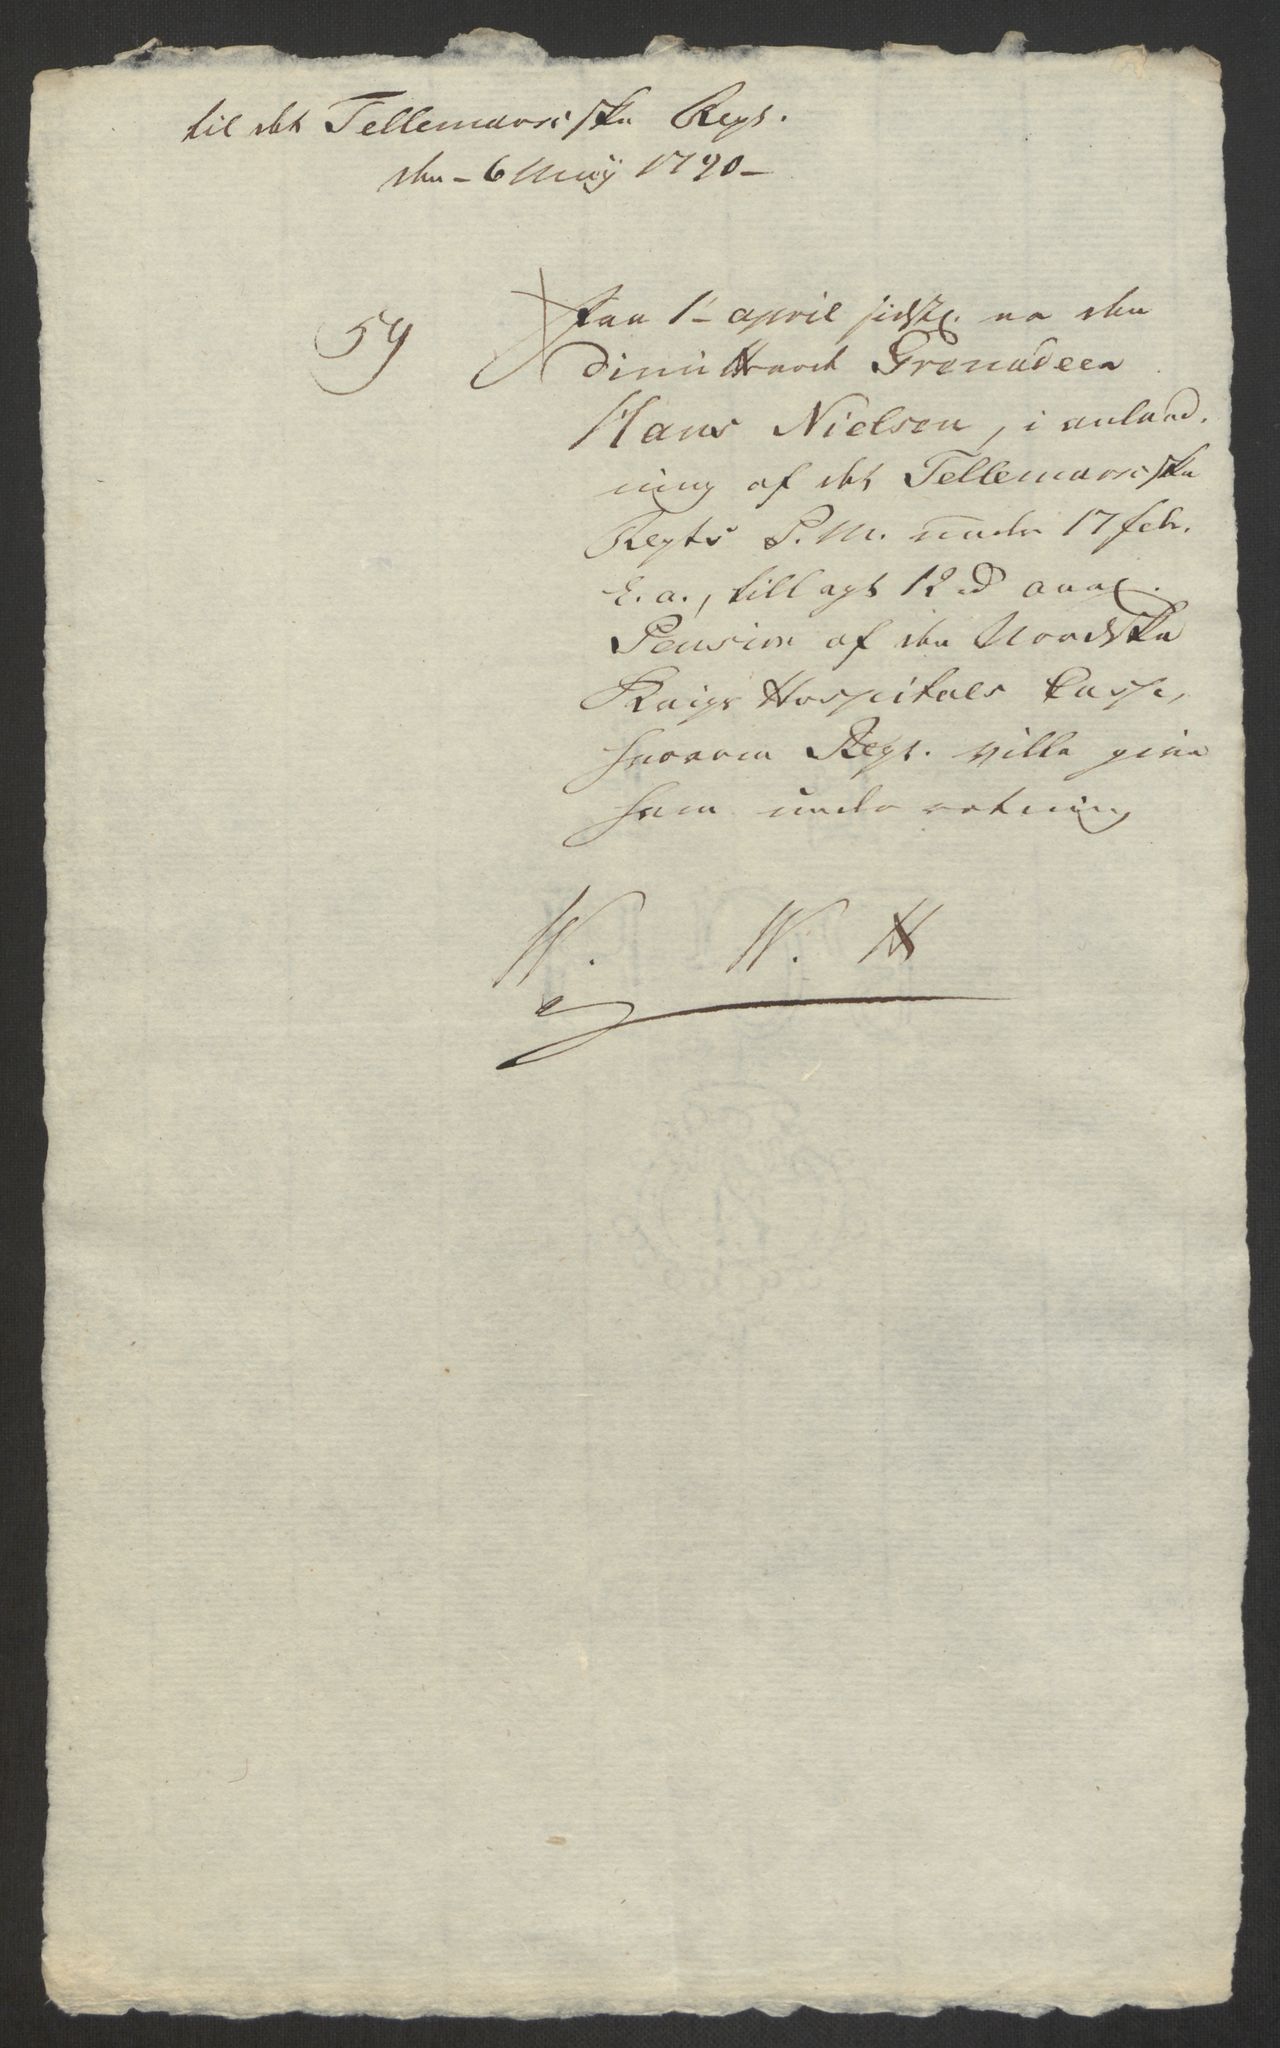 til det Tellemarciske Regt.
den 6 Maij 1790
59
Fra 1- april sidstl. er den
dimitteret Grenadeer
Hans Nielsen, i anled-
ning af det Tellemarciske
Regts P.M. under 17 febr.
h. a., tillagt 12 rd aarl.
Pension af den Nordske
Krigs Hospitals Casse,
hvorom Regt. ville give
ham underretning
W. W. H